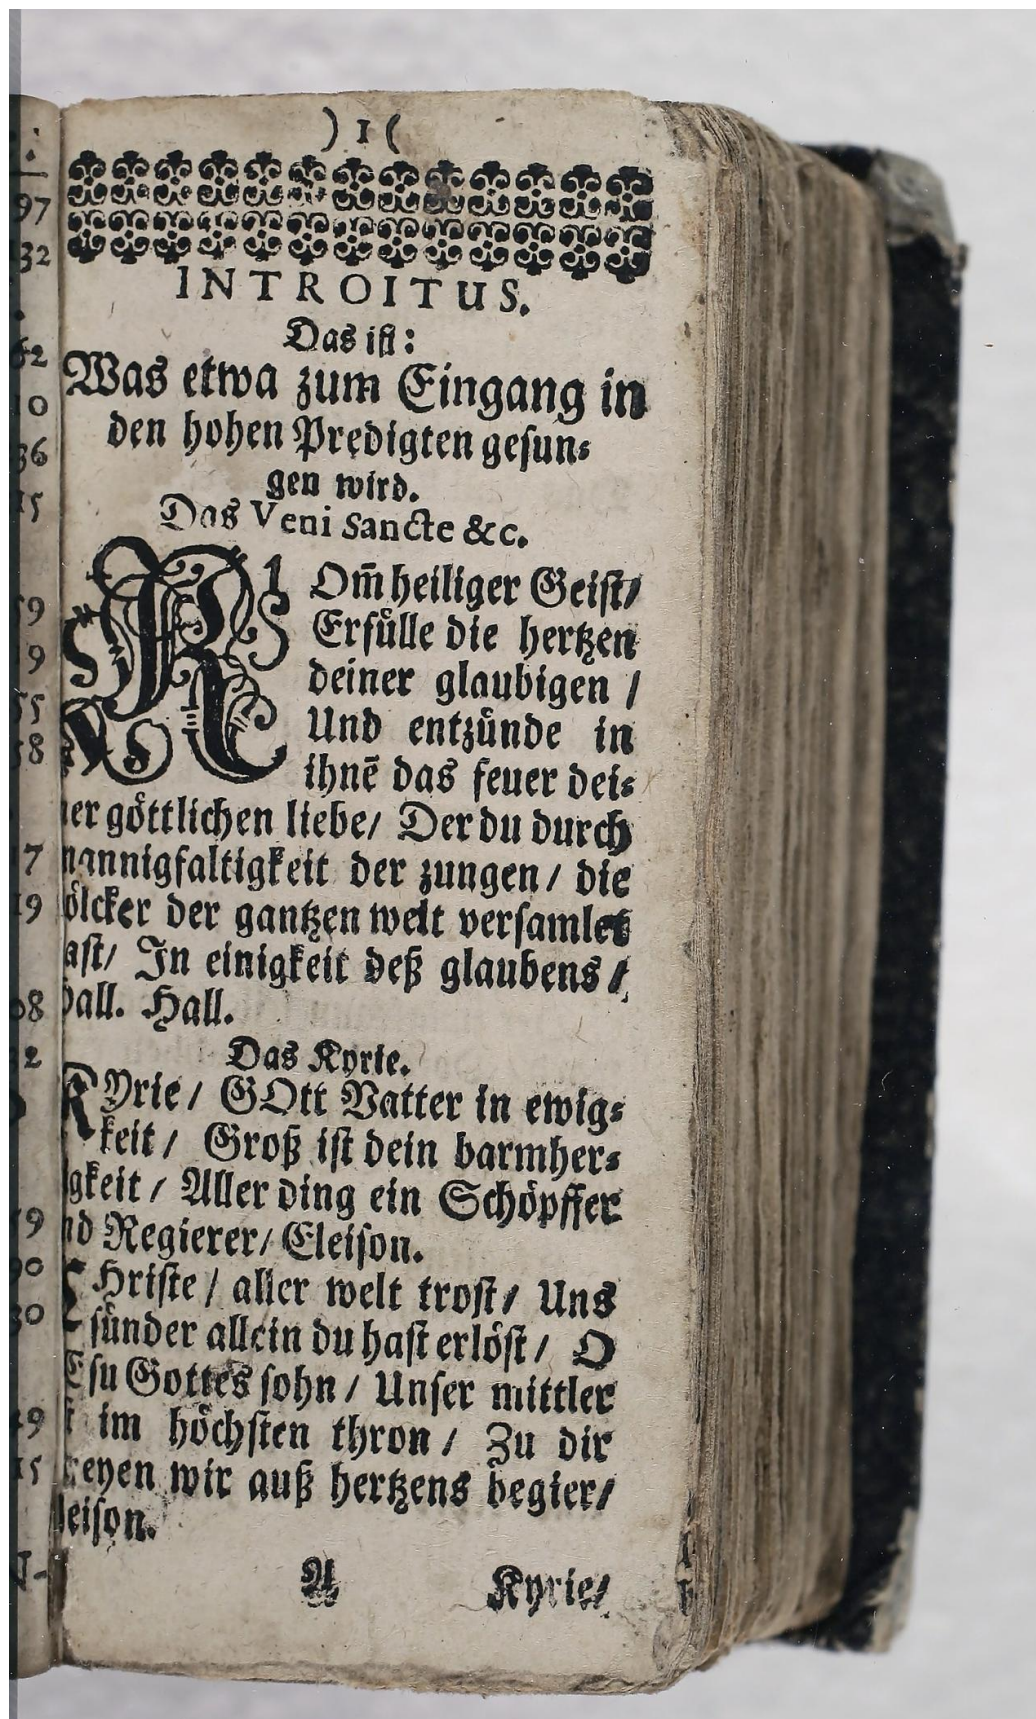 ) 1 (
INTROITUS.
Das ist:
Was etwa zum Eingang in
den hohen Predigten gesun⸗
gen wird.
Das Veni Sancte &c.
KOm̄ heiliger Geist/
Erfuͤlle die hertzen
deiner glaubigen /
Und entzuͤnde in
ihnē das feuer dei⸗
ner goͤttlichen liebe/ Der du durch
mannigfaltigkeit der zungen / die
oͤlcker der gantzen welt versamlet
ast/ In einigkeit deß glaubens /
Hall. Hall.
Das Kyrie.
KYrie / GOtt Vatter in ewig⸗
keit / Groß ist dein barmher⸗
igkeit / Aller ding ein Schoͤpffer
nd Regierer / Eleison.
CHriste / aller welt trost / Uns
suͤnder allein du hast erloͤst / O
Esu Gottes sohn / Unser mittler
st im hoͤchsten thron / Zu dir
reyen wir auß hertzens begier /
leison.
A Kyrie/
97
32
62
10
36
15
59
19
55
58
7
19
08
2
59
90
30
49
15